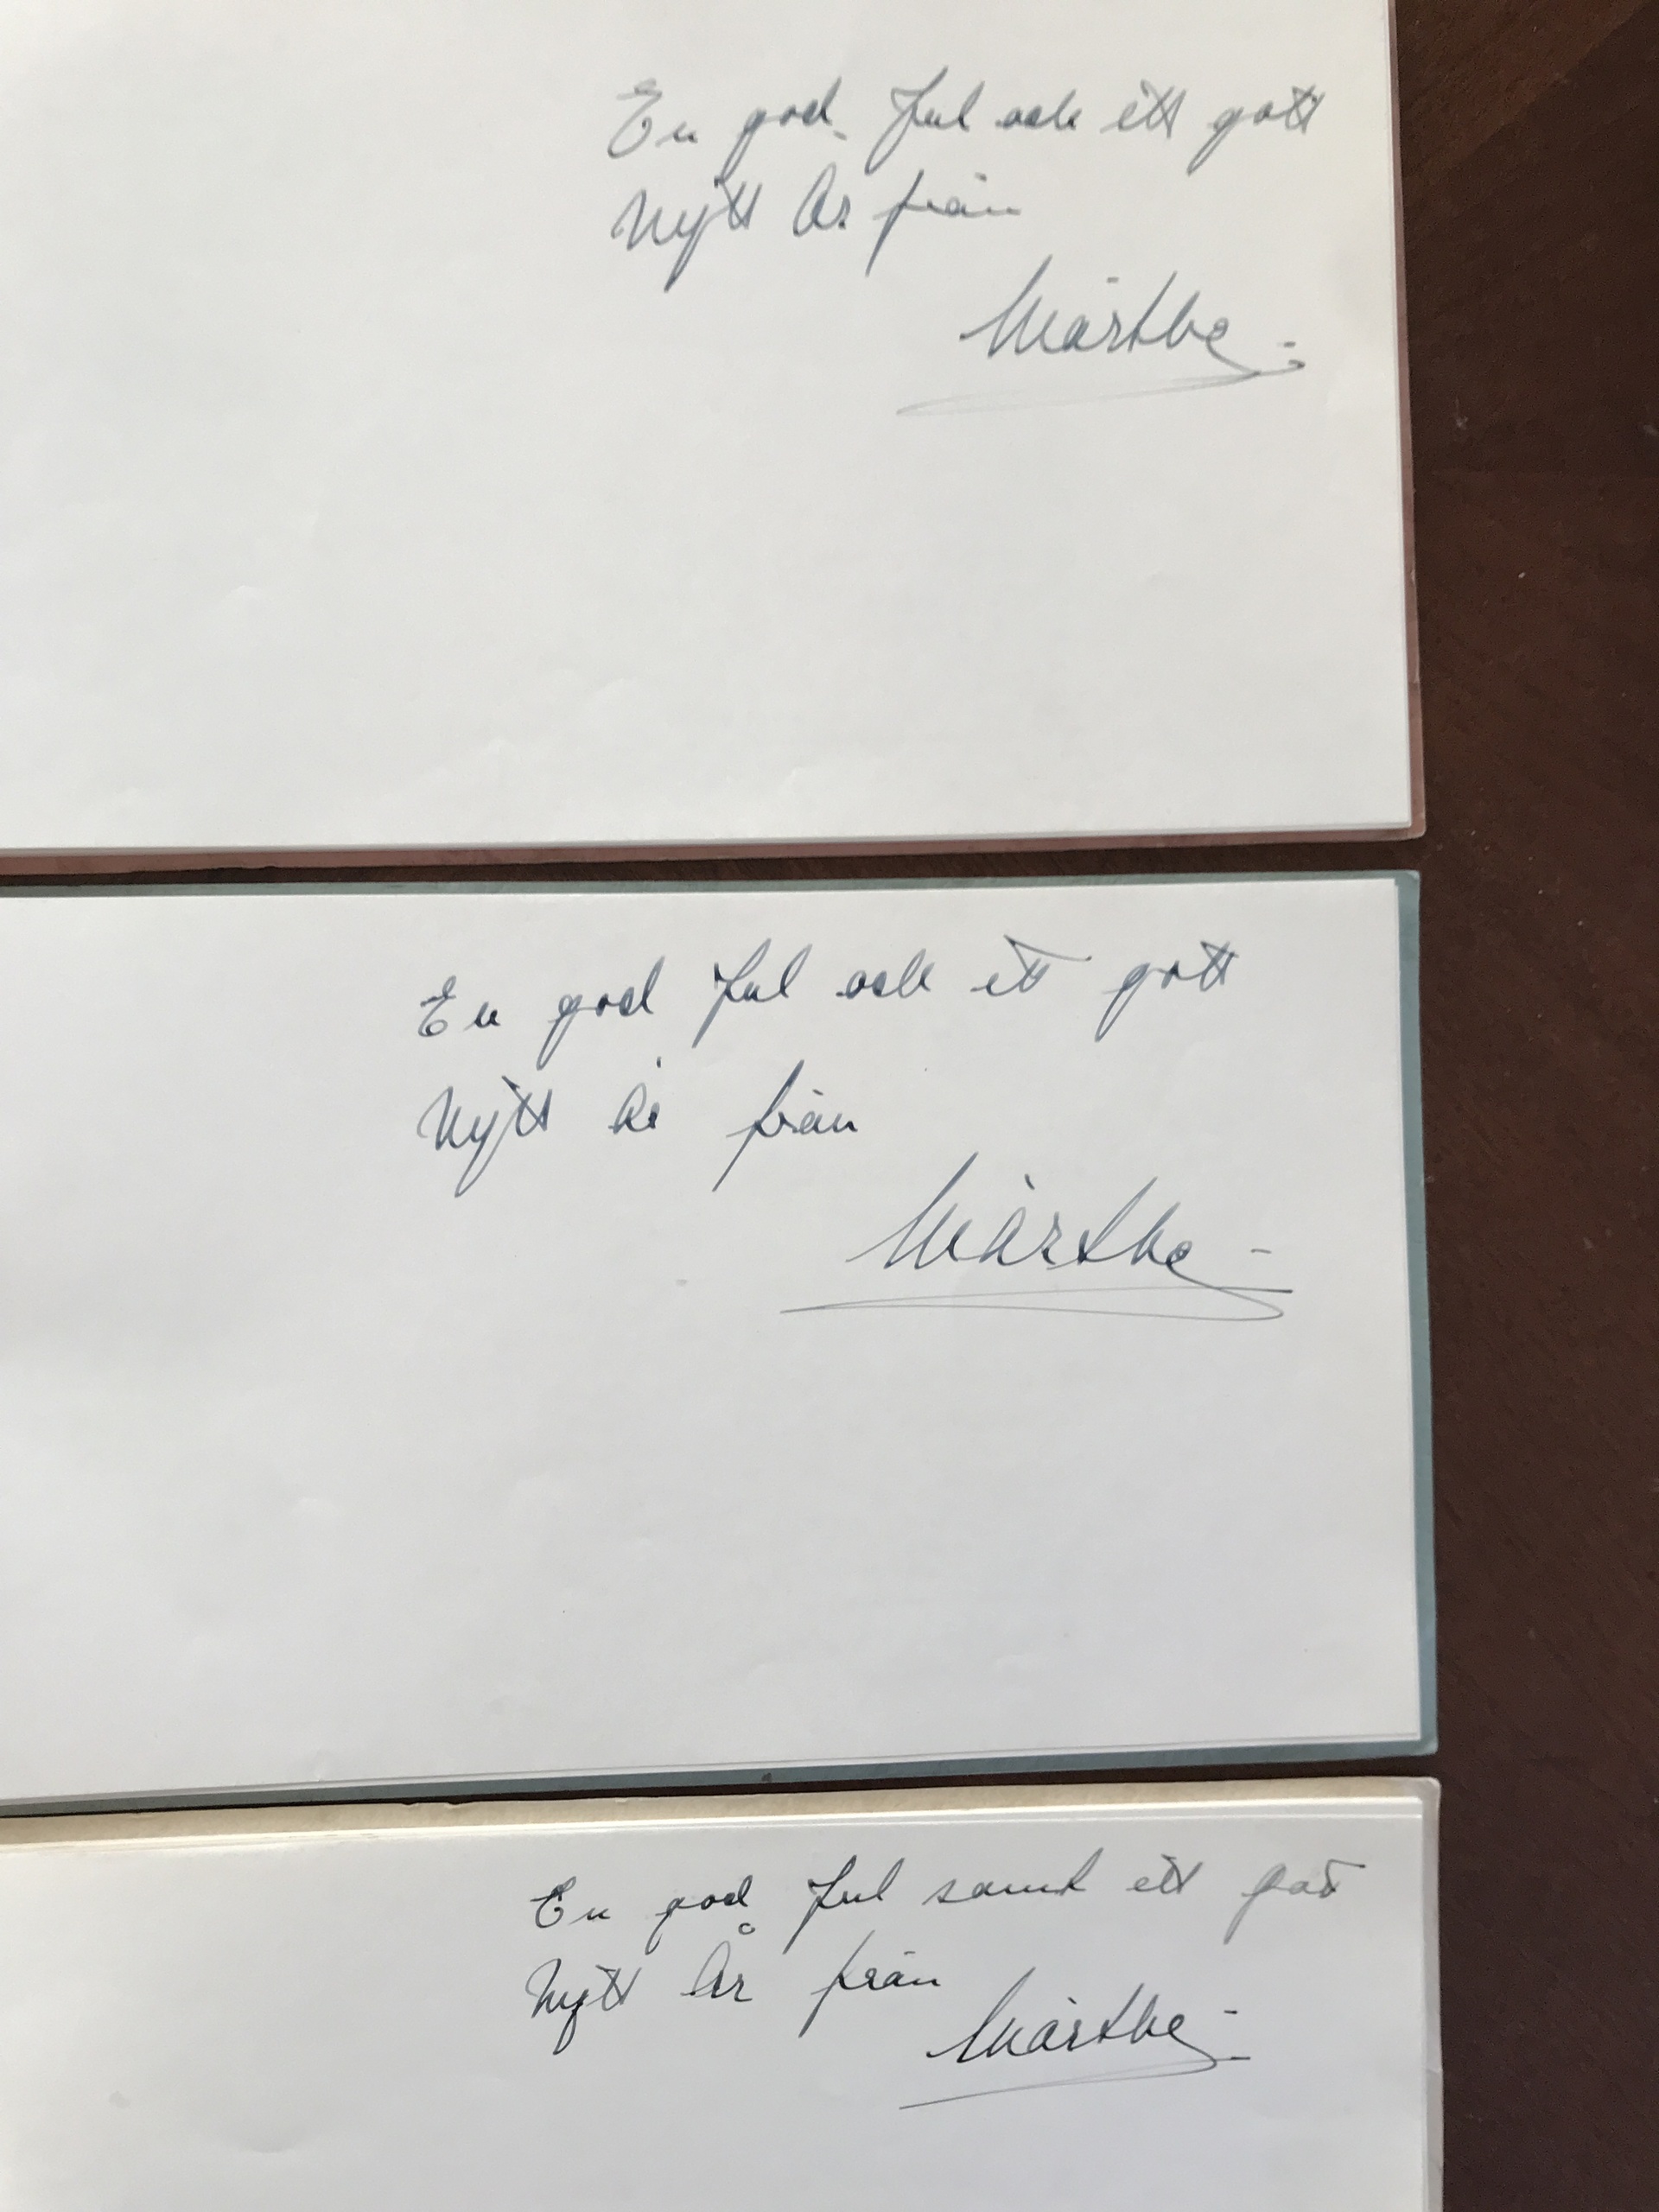 En god Jul och ett gott
Nytt År från
Märthe
En god Jul och ett gott
Nytt År från
Märthe
En god Jul samt ett gott
Nytt År från
Märthe